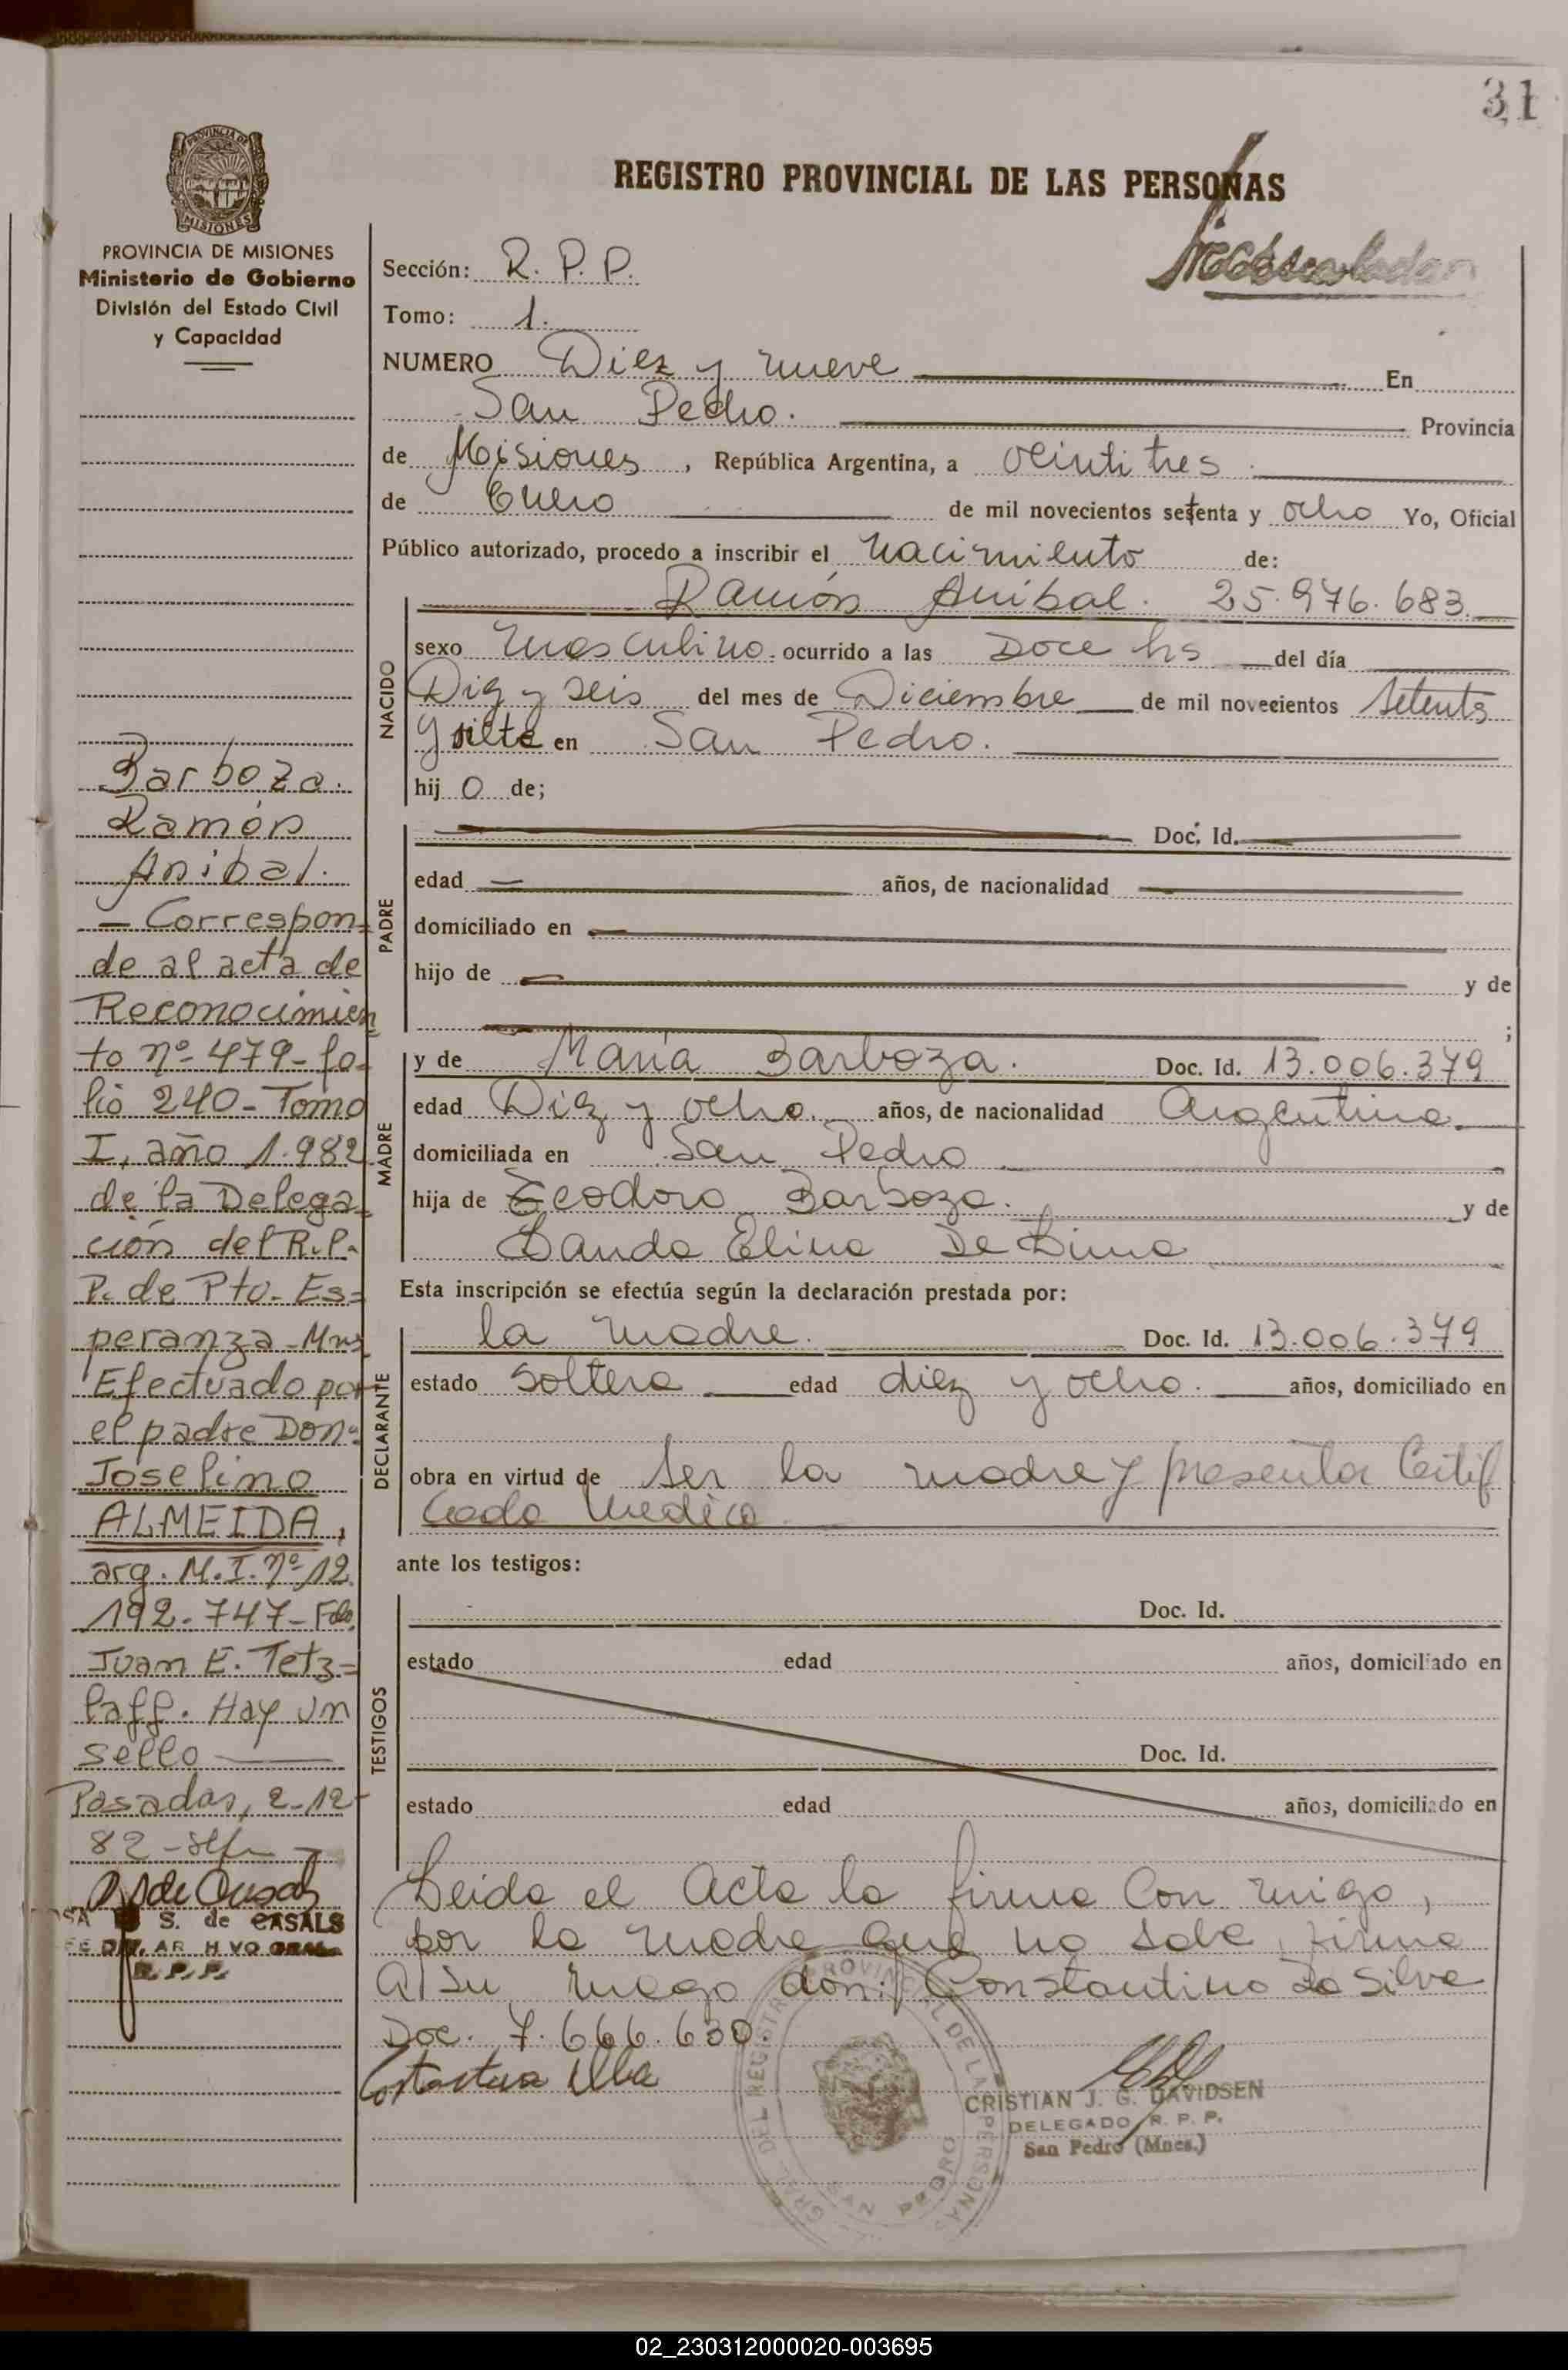 31
REGISTRO PROVINCIAL DE LAS PERSONAS
PROVINCIA DE MISIONES
Ministerio de Gobierno
División del Estado Civil
y Capacidad
Sección: R. P. P.
Tomo: 1.
NUMERO Diez y nueve En
San Pedro. Provincia
de Misiones, República Argentina, a veinti tres
de Enero de mil novecientos setenta y ocho Yo, Oficial
Público autorizado, procedo a inscribir el nacimiento de:
Ramón Anibal. 25.976.683
NACIDO
sexo masculino. ocurrido a las Doce hs del día
Diez y seis del mes de Diciembre de mil novecientos setenta
y siete en San Pedro.
hij o de;
PADRE
Doc. Id.
edad años, de nacionalidad
domiciliado en
hijo de y de
;
MADRE
y de María Barboza. Doc. Id. 13.006.379
edad Diez y ocho. años, de nacionalidad Argentina.
domiciliada en San Pedro
hija de Teodoro Barboza. y de
Elina De Lima
Esta inscripción se efectúa según la declaración prestada por:
DECLARANTE
la madre. Doc. Id. 13.006.379
estado soltera edad diez y ocho. años, domiciliado en
obra en virtud de ser la madre y presentar Certif
cado Medico
ante los testigos:
TESTIGOS
Doc. Id.
estado edad años, domiciliado en
Doc. Id.
estado edad años, domiciliado en
Leida el Acta la firma Con migo,
por la madre que no sabe, firma
a su ruego don: Constantino Da Silva
Doc. 7.666.630.
CRISTIAN J. G. DAVIDSEN
DELEGADO R. P. P.
San Pedro (Mnes.)
GRAL DEL REGISTRO PROVINCIAL DE LAS PERSONAS
SAN PEDRO
Barboza.
Ramón
Anibal.
- Correspon=
de al acta de
Reconocimien
to nº 479-fo-
lio 240-Tomo
I, año 1.982
de la Delega-
ción del R.P.
P. de Pto. Es=
peranza-Mns
Efectuado por
el padre Don:
Joselino
ALMEIDA,
arg. M.I. nº 12.
192.747-Fdo.
Juan E. Tetz=
laff. Hay un
sello
Posadas, 2-12-
82-
S. de CASALS
R.P.P.
02_230312000020-003695